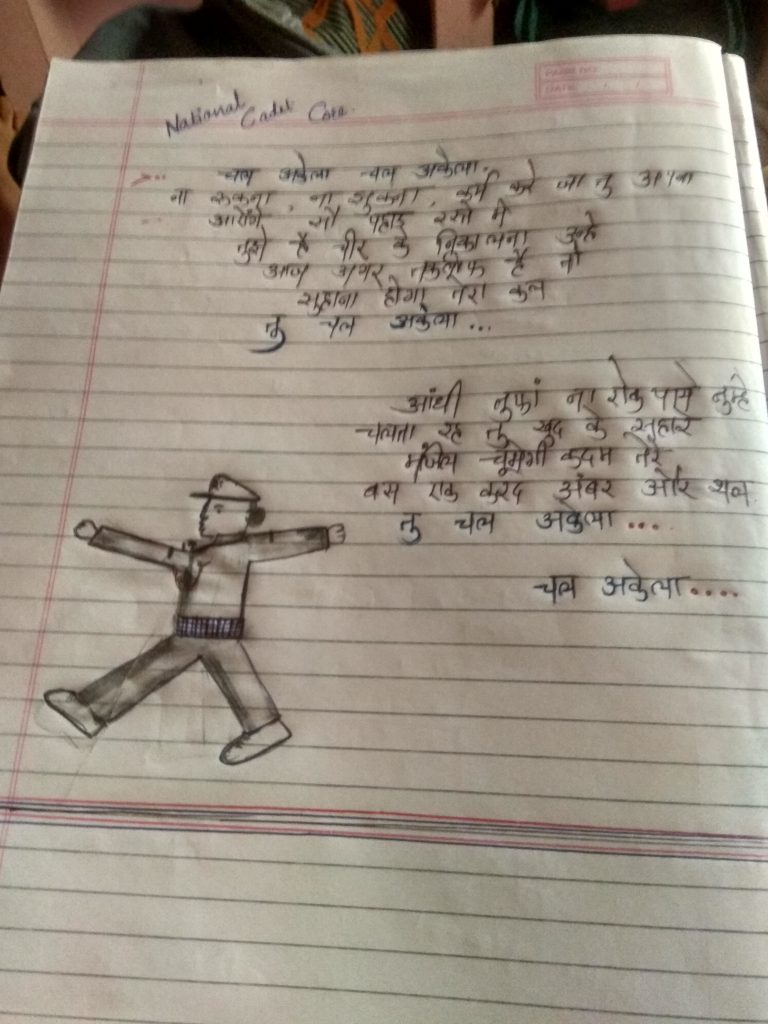 PAGE NO.
DATE
National Cadet Core.
चल अकेला चल अकेला.
ना रुकना, ना झुकना, कर्म करे जा तु अपना
आयेंगे सौ पहाड़ रस्ते में
तुझे है चीर के निकालना उन्हे
आज अगर तकलीफ है तो
सुहाना होगा तेरा कल
तु चल अकेला...
आंधी तुफां ना रोक पाये तुम्हे
चलता रह तु खुद के सहारे
मंजिल चूमेगी कदम तेरे
बस एक करदे अंबर और थल.
तु चल अकेला....
चल अकेला....